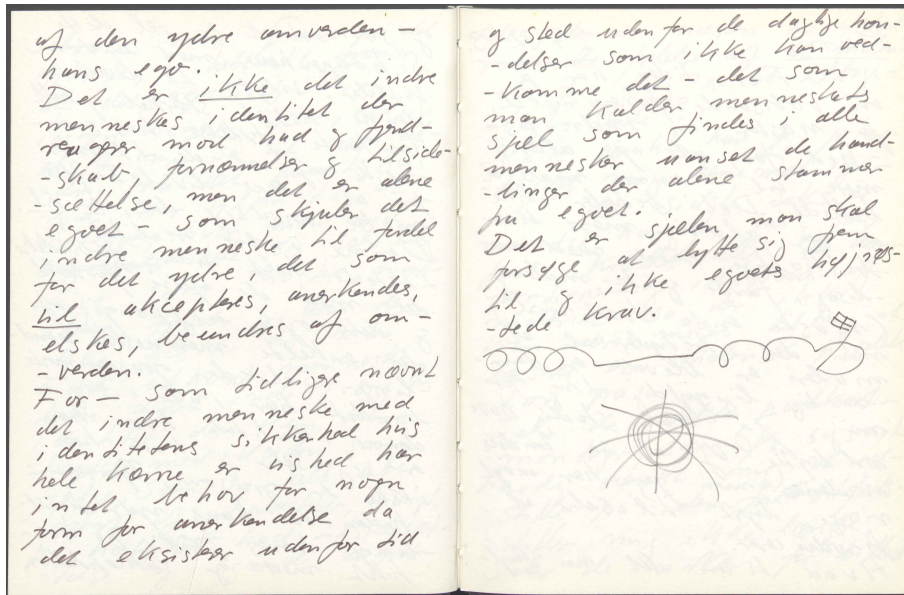 af den ydre omverden –
hans ego.
Det er ikke det indre
menneskes identitet der
reagerer mod had & fjend-
-skab, fornærmelser & tilside-
-sættelse, men det er alene
egoet – som skjuler det
indre menneske til fordel
for det ydre, det som
vil akcepteres, anerkendes,
elskes, beundres af om-
-verden.
For – som tidligere nævnt
det indre menneske med
identitetens sikkerhed hvis
hele kærne er vished har
intet behov for nogen
form for anerkendelse da
det eksisterer udenfor tid
& sted udenfor de daglige hæn-
-delser som ikke kan ved-
-komme det – det som
man kalder menneskets
sjæl som findes i alle
mennesker uanset de hand-
-linger der alene stammer
fra egoet.
Det er sjælen man skal
forsøge at lytte sig frem
til & ikke egoets højrøs-
-tede krav.